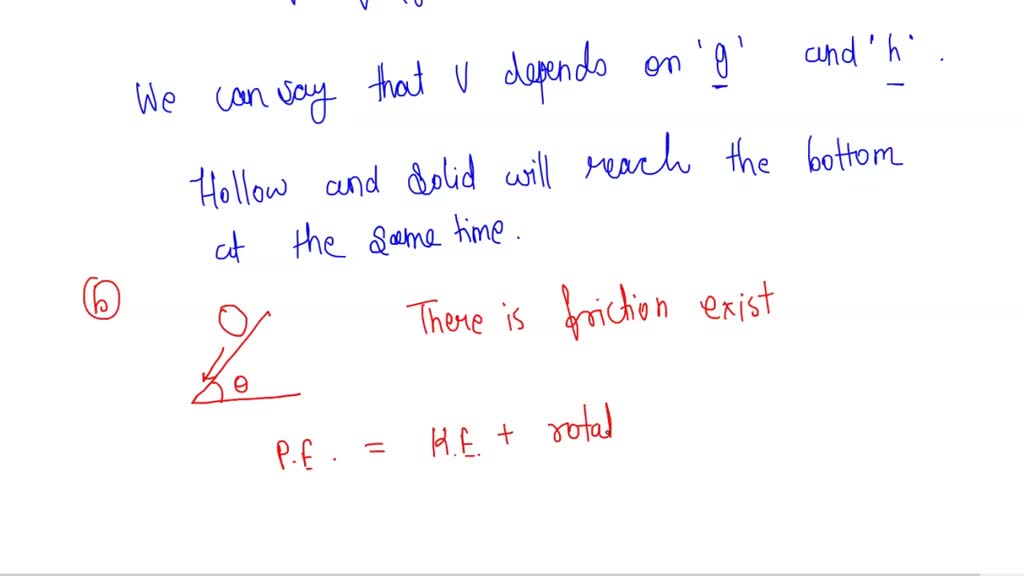 We can say that V depends on 'g' and 'h'.
Hollow and Solid will reach the bottom
at the same time.
(b)
There is friction exist
θ
P.E. = K.E. + rotal